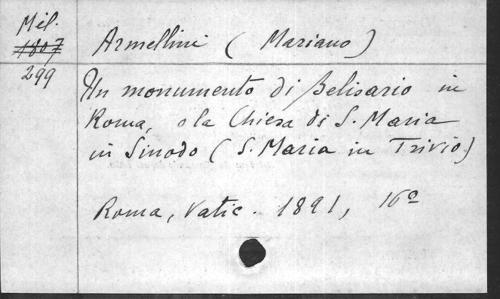 Mil.
1807
299
Armellini (Mariano)
Un monumento di Belisario in
Roma, o la Chiesa di S. Maria
in Sinodo (S. Maria in Trivio)
Roma, Vatic. 1891, 16º